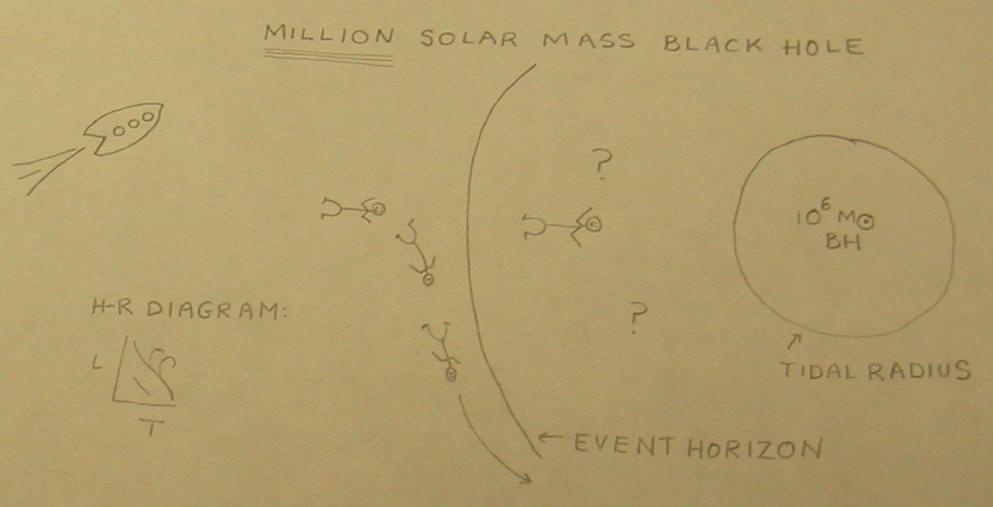 MILLION SOLAR MASS BLACK HOLE
?
10⁶ M⊙
BH
H-R DIAGRAM:
?
L
TIDAL RADIUS
T
← EVENT HORIZON